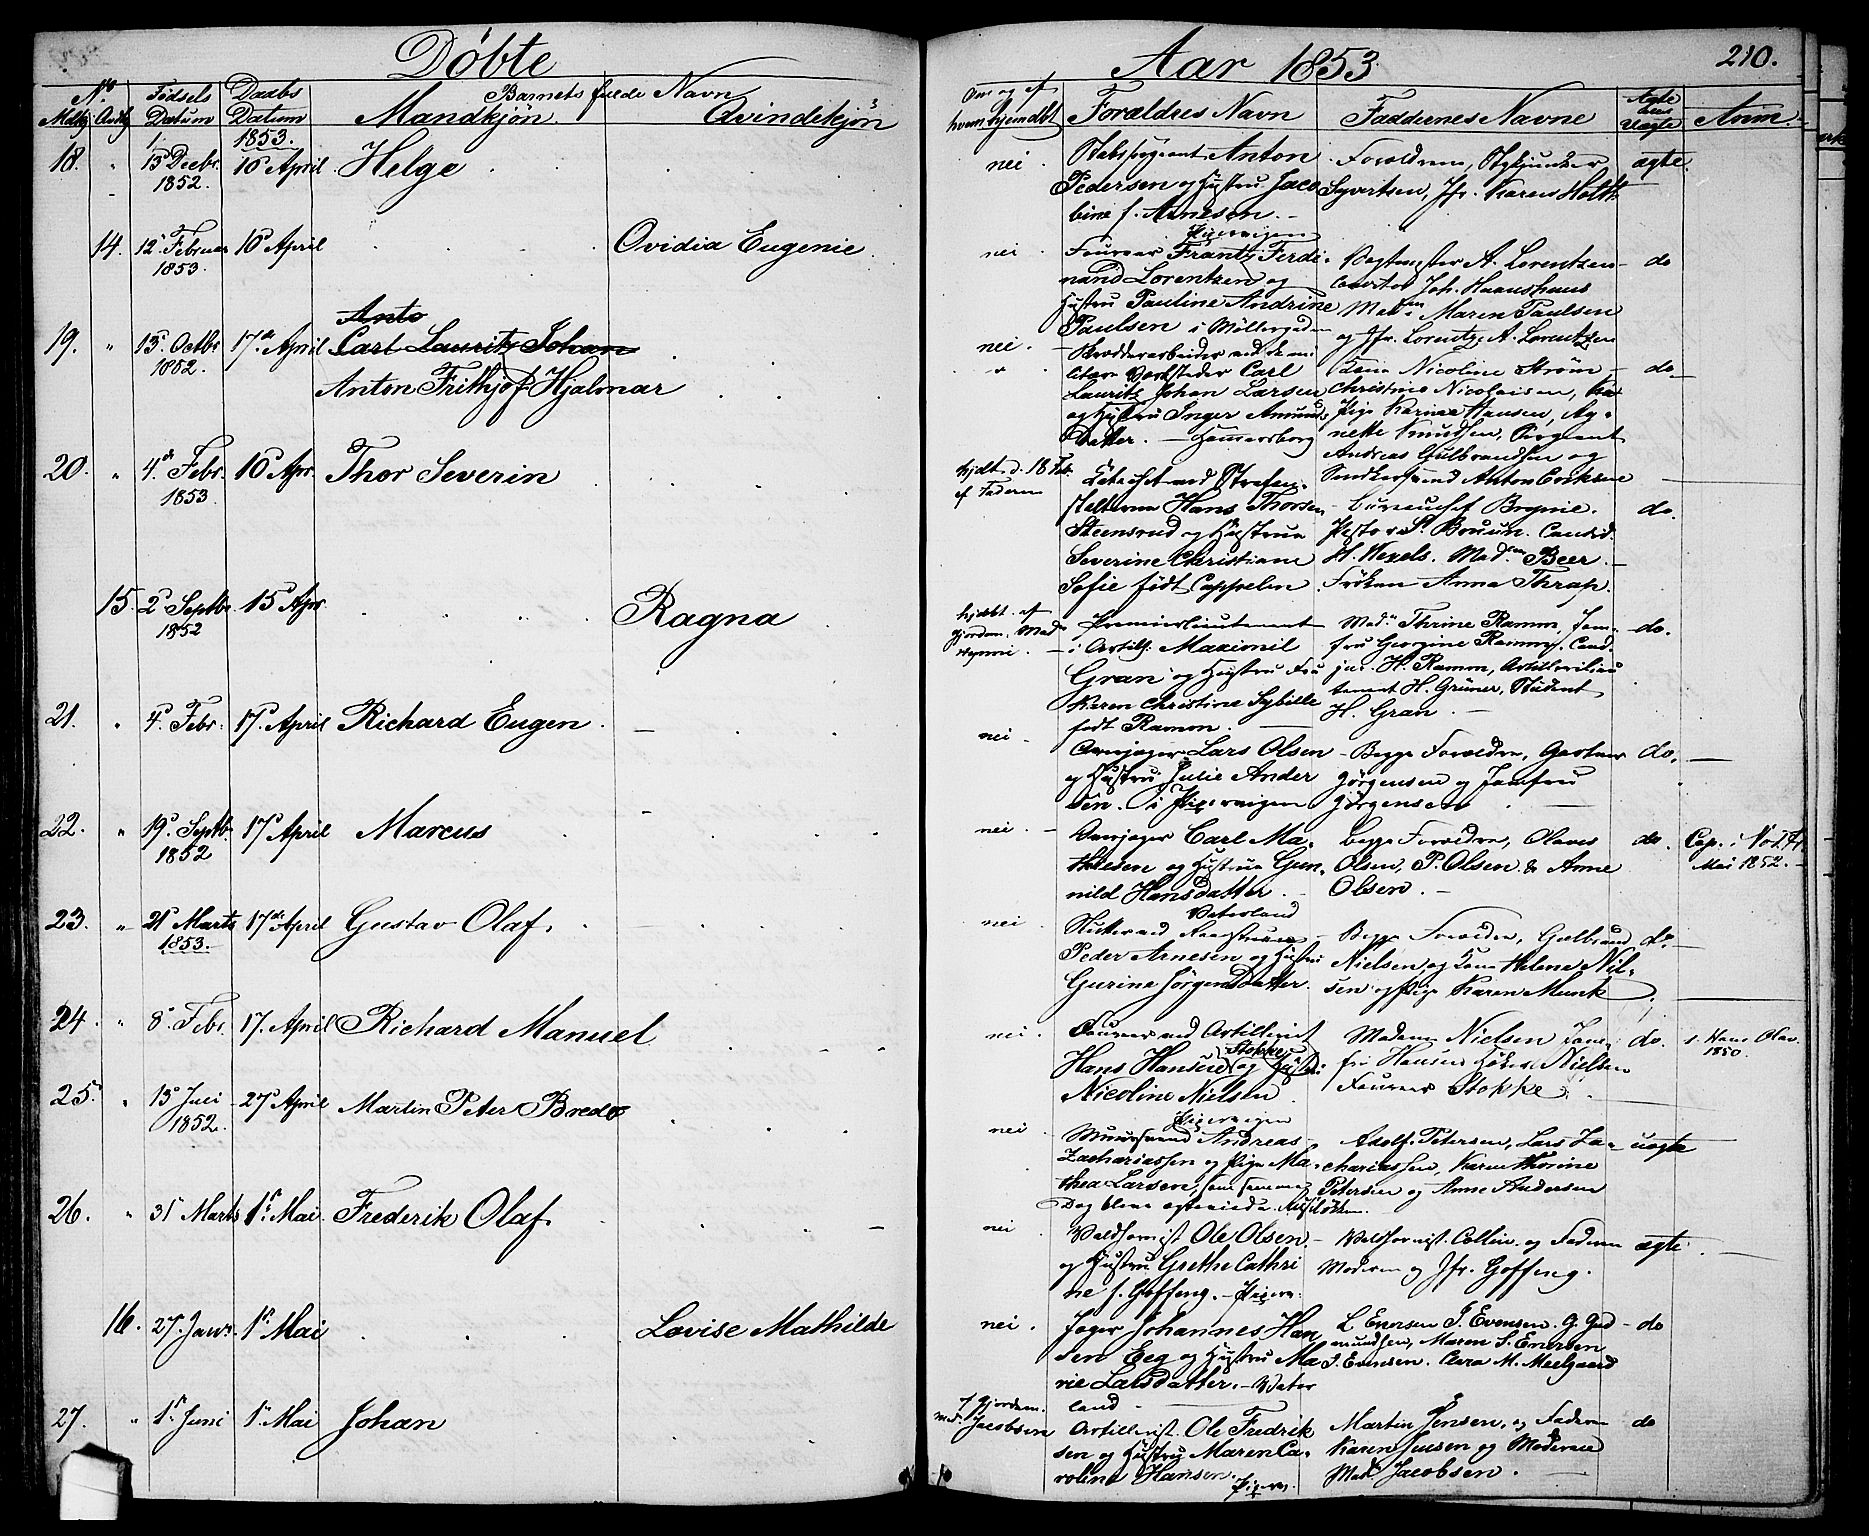 Döbte
Aar 1853
210.
No
Födsels Datum
Daabs Datum
Barnets fulde Navn
Mandkjön.
Qvindekjön
Forældres Navn
Faddernes Navne
Ægte eller Uægte
Anm.
1853.
18. 13 Decbr. 1852. 16 April Helge
nei.
Anton
Pedersen og Hustru Jaco
bine f. Arnesen.
Forældrene,
Syvertsen, Jfr. Karen Holth
ægte.
14. 12 Februar 1853. 16 April Ovidia Eugenie
nei
Pipervigen
Fourier Frantz Ferdi-
nand Lorentzen og
Hustru Pauline Andrine
Paulsen i Möllergaden
Vagtmester A. Lorentzen
Joh. Haanshuus
Madm Maren Paulsen
og Jfr. Lorentze A. Lorentzen
do
19. 13. Octbr 1852. 17de April
Anto
Carl Lauritz Johan
Anton Frithjof Hjalmar
nei.
Skrædderarbeider ved de mi
litære Værksteder Carl
Lauritz Johan Larsen
og Hustru Inger Amunds
Datter. - Hammersborg
Kone Nicoline Ström
Christine Nicolaisen,
Pige Karine Hansen, Ag-
nette Knudsen, Sergeant
Andreas Gulbrandsen og
Snedkersvend Anton Eriksen
do
20. 4de Febr. 1853 16 Apr. Thor Severin
hjdt. d. 18 Feb.
af Faderen
ved Strafan-
stalterne Hans Thorsen
Steensrud og Hustrue
Severine Christiane
Sofie födt Cappelen
Bureauchef Brynie.
Pastor S. Bruun. Candid.
H. Wexels. Madm Beer.
Fröken Anna Thrap.
do.
15. 2 Septbr. 1852 15 Apr. Ragna
hjdbt. af
Gjordem. Mad
Premierlieutenant
i Artill. Maximil
Gran og Hustru Fru
Karen Christine Sybille
födt Ramm.
Mad. Thrine Ramm, Jom-
fru Georgine Ramm, Cand.
jur. H. Ramm, Artillerilieu
tenant H. Grüner, Student
H. Gran.
do.
21. 4. Febr. 17. April Richard Eugen.
nei
Lars Olsen
og Hustru Julie Ander
sen. i Pipervigen
Begge Forældre, Gartner
Jörgensen og Jomfru
Jörgensen
do.
22. 19. Septbr. 1852 17 April Marcus
nei.
Carl Ma-
thiesen og Hustrue Gun-
nild Hansdatter.
Begge Forældre, Olaves
Olsen, P. Olsen & Anne
Olsen.
do.
Cop. i
Mai 1852.
23. 21 Marts 1853. 17de April Gustav Olaf.
nei
Vaterland
Peder Arnesen og Hustru
Gurine Jörgensdatter.
Begge Forældre, Gulbrand
Nielsen, og Kone Helene Nil-
sen og Pige Karen Munk
do
24. 8. Febr. 17. April Richard Manuel
nei.
Fourier ved Artilleriet
Hans Hansen Stokke og Hustru
Nicoline Nielsen
Madame Nielsen Jom-
fru Hansen Nielsen
Fourier Stokke
do.
s. Hans Olav.
1850.
25. 13 Juli 1852. 27 April Martin Peter Bredo
nei
Pipervigen
Muursvend Andreas
Zachariassen og Pige Ma-
thea Larsen, som samme
Dag bleve ægteviede.
Adolf Petersen, Lars Za-
chariassen, Karen Thorine
Petersen og Anne Andersen
uægte
26. 31 Marts 1. Mai. Frederik Olaf.
nei
Valdhornist Ole Olsen
og Hustru Grethe Cathri
ne f. Goffeng. - Piperv.
Valdhornist Collin. og Faderen
Moderen og Jfr. Goffeng.
ægte
16. 27. Janr. 1. Mai Lovise Mathilde
nei.
Jæger Johannes Han
sen Eeg og Hustru Ma
rie Larsdatter. - Vater
land
L. Enersen J. Evensen. G. Gud
mundsen, Maren S. Enersen
J. Evensen. M. Melgaard
do
27. 1. Juni 1. Mai Johan
af Gjordem.
Mad. Jacobsen
Artillerist Ole Fredrik
sen og Hustru Maren Ca-
roline Hansen. Piperv.
Martin Jensen, og Faderen
Karen Jensen og Moderen
Mad. Jacobsen.
do